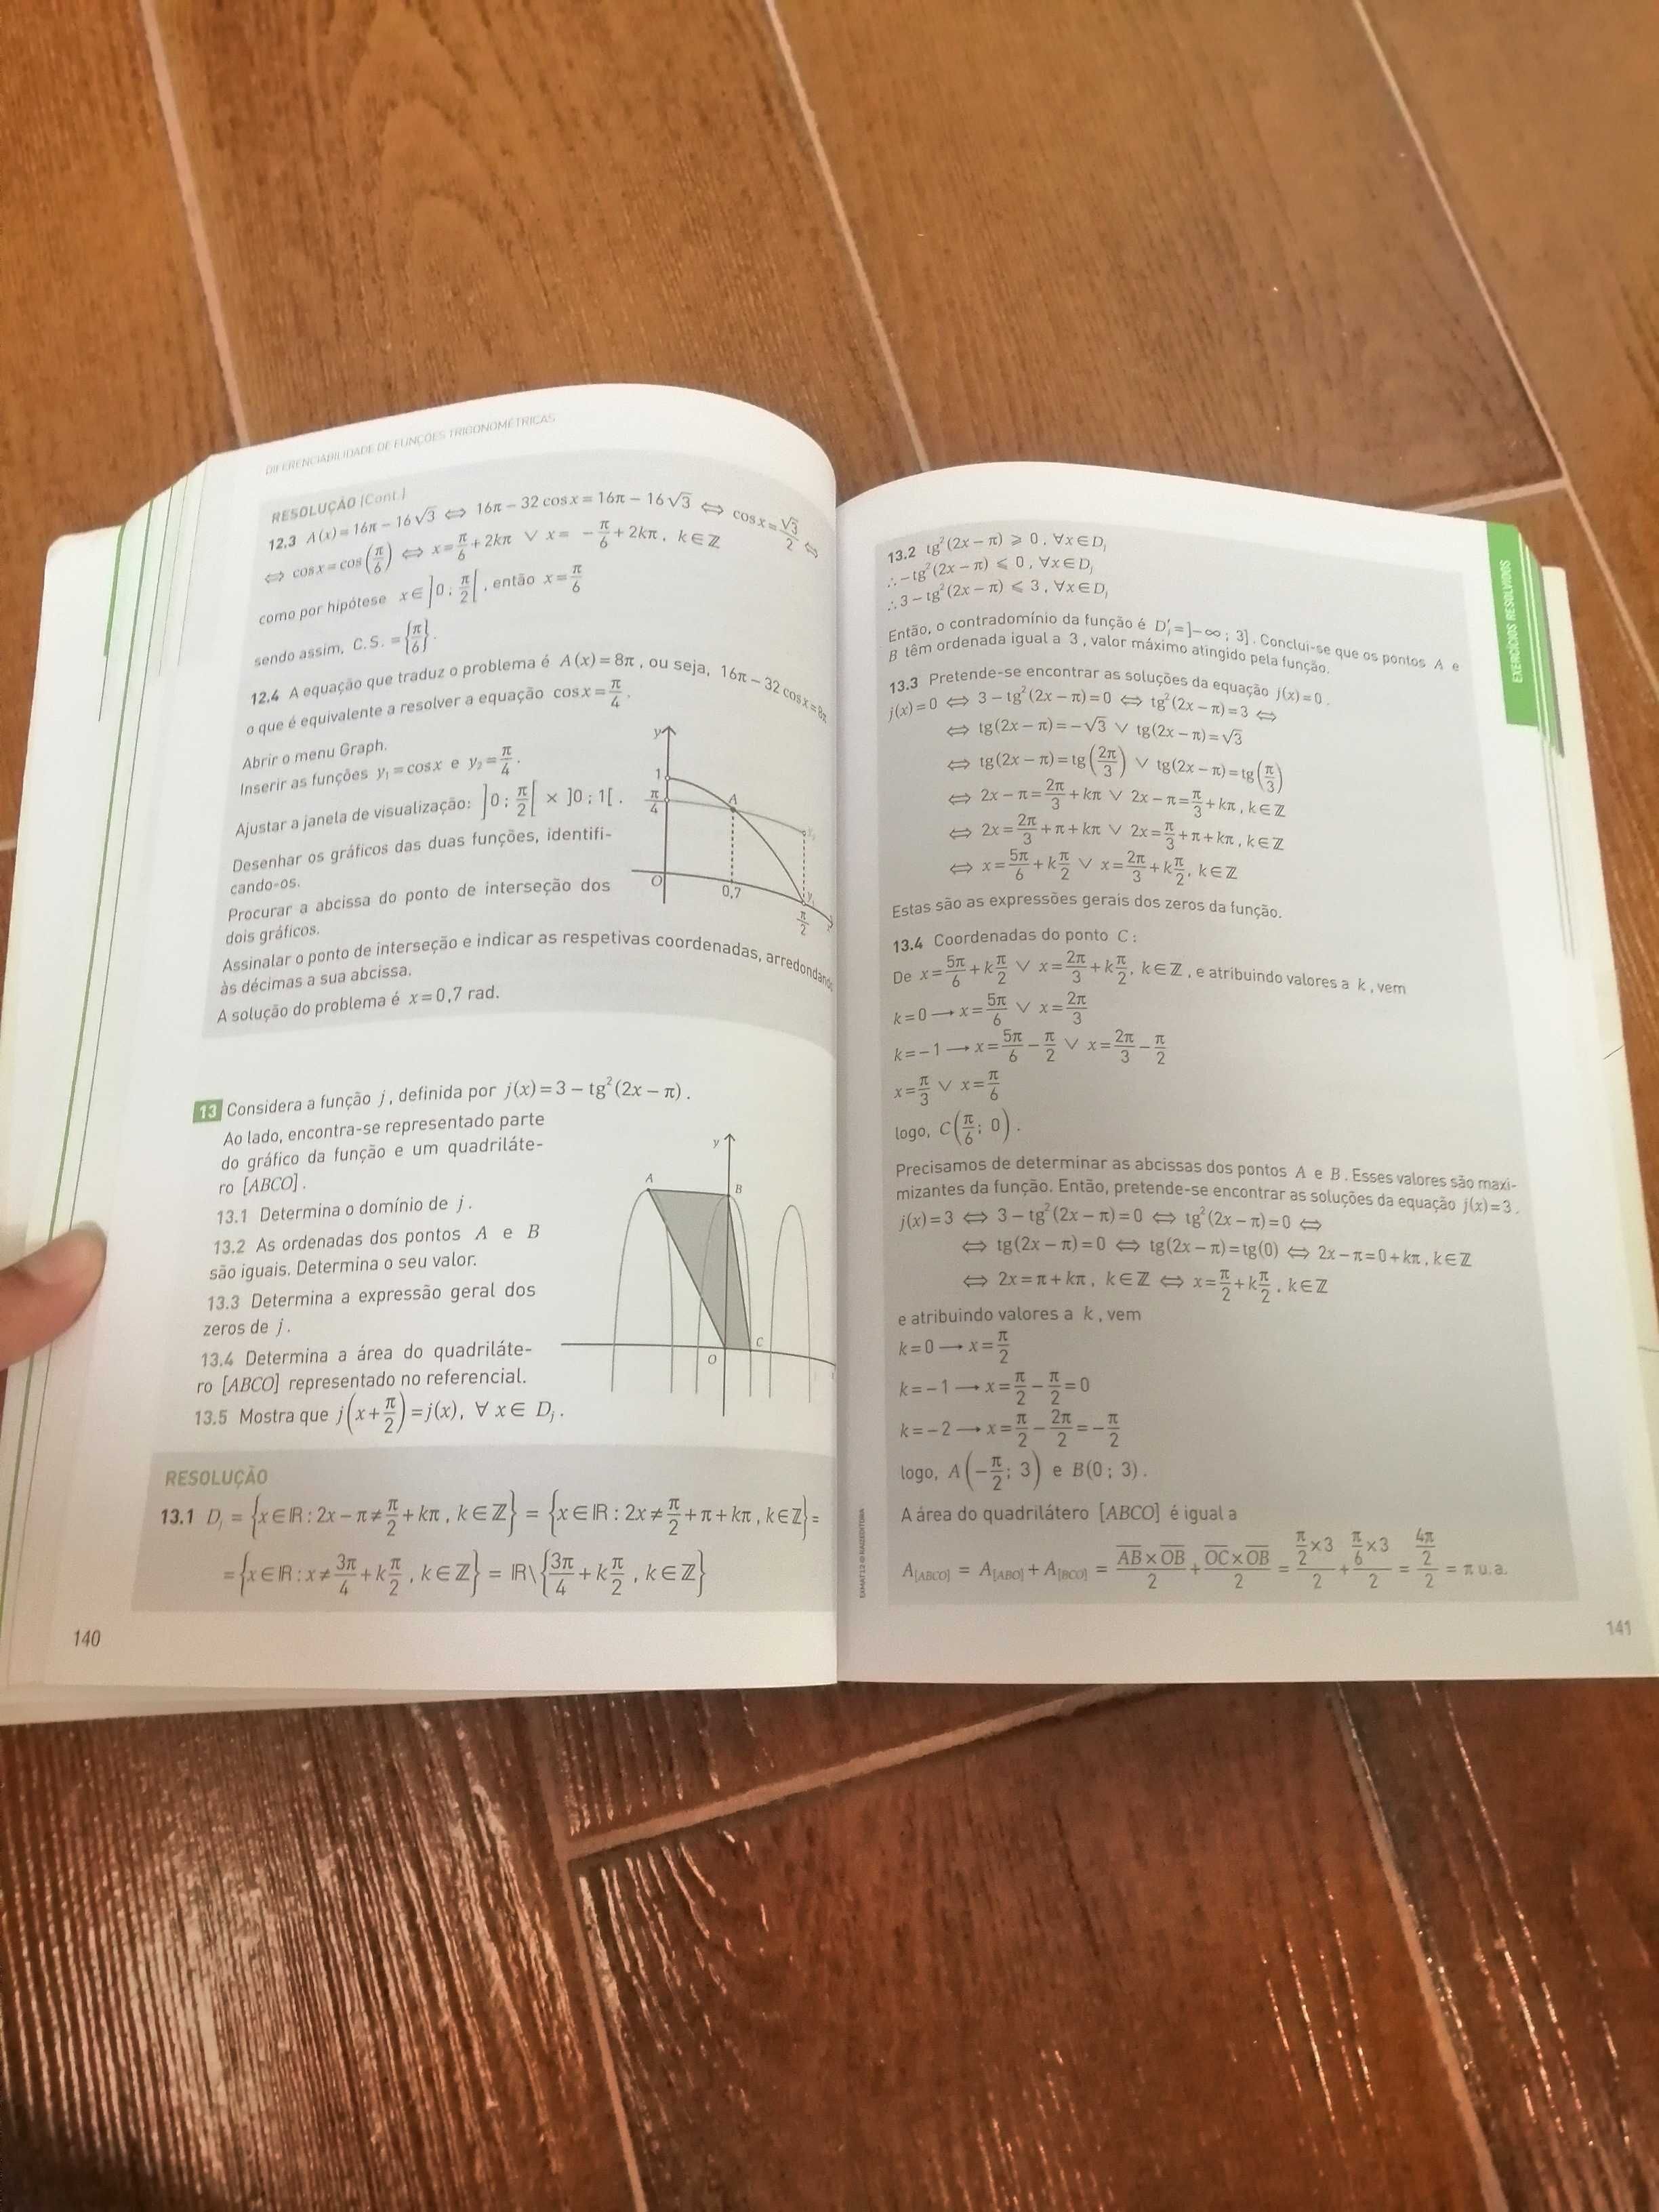 DIFERENCIABILIDADE DE FUNÇÕES TRIGONOMÉTRICAS
RESOLUÇÃO (Cont.)
12.3 A(x) = 16π − 16√3 ⇔ 16π − 32 cos x = 16π − 16√3 ⇔ cos x = √3/2 ⇔
⇔ cos x = cos(π/6) ⇔ x = π/6 + 2kπ ∨ x = −π/6 + 2kπ, k ∈ ℤ
como por hipótese x ∈ ]0 ; π/2[, então x = π/6
sendo assim, C.S. = {π/6}.
12.4 A equação que traduz o problema é A(x) = 8π, ou seja, 16π − 32 cos x = 8π
o que é equivalente a resolver a equação cos x = π/4.
Abrir o menu Graph.
Inserir as funções y₁ = cos x e y₂ = π/4.
Ajustar a janela de visualização: ]0 ; π/2[ × ]0 ; 1[.
Desenhar os gráficos das duas funções, identifi-
cando-os.
Procurar a abcissa do ponto de interseção dos
dois gráficos.
Assinalar o ponto de interseção e indicar as respetivas coordenadas, arredondando
às décimas a sua abcissa.
A solução do problema é x = 0,7 rad.
y
1
π/4
A
y₂
O
0,7
y₁
π/2
13 Considera a função j, definida por j(x) = 3 − tg²(2x − π).
Ao lado, encontra-se representado parte
do gráfico da função e um quadriláte-
ro [ABCO].
13.1 Determina o domínio de j.
13.2 As ordenadas dos pontos A e B
são iguais. Determina o seu valor.
13.3 Determina a expressão geral dos
zeros de j.
13.4 Determina a área do quadriláte-
ro [ABCO] representado no referencial.
13.5 Mostra que j(x + π/2) = j(x), ∀ x ∈ Dⱼ.
y
A
B
O
C
RESOLUÇÃO
13.1 Dⱼ = {x ∈ ℝ : 2x − π ≠ π/2 + kπ, k ∈ ℤ} = {x ∈ ℝ : 2x ≠ π/2 + π + kπ, k ∈ ℤ} =
= {x ∈ ℝ : x ≠ 3π/4 + k π/2, k ∈ ℤ} = ℝ\{3π/4 + k π/2, k ∈ ℤ}
140
13.2 tg²(2x − π) ⩾ 0, ∀x ∈ Dⱼ
∴ −tg²(2x − π) ⩽ 0, ∀x ∈ Dⱼ
∴ 3 − tg²(2x − π) ⩽ 3, ∀x ∈ Dⱼ
Então, o contradomínio da função é D′ⱼ = ]−∞ ; 3]. Conclui-se que os pontos A e
B têm ordenada igual a 3, valor máximo atingido pela função.
13.3 Pretende-se encontrar as soluções da equação j(x) = 0.
j(x) = 0 ⇔ 3 − tg²(2x − π) = 0 ⇔ tg²(2x − π) = 3 ⇔
⇔ tg(2x − π) = −√3 ∨ tg(2x − π) = √3
⇔ tg(2x − π) = tg(2π/3) ∨ tg(2x − π) = tg(π/3)
⇔ 2x − π = 2π/3 + kπ ∨ 2x − π = π/3 + kπ, k ∈ ℤ
⇔ 2x = 2π/3 + π + kπ ∨ 2x = π/3 + π + kπ, k ∈ ℤ
⇔ x = 5π/6 + k π/2 ∨ x = 2π/3 + k π/2, k ∈ ℤ
Estas são as expressões gerais dos zeros da função.
13.4 Coordenadas do ponto C:
De x = 5π/6 + k π/2 ∨ x = 2π/3 + k π/2, k ∈ ℤ, e atribuindo valores a k, vem
k = 0 → x = 5π/6 ∨ x = 2π/3
k = −1 → x = 5π/6 − π/2 ∨ x = 2π/3 − π/2
x = π/3 ∨ x = π/6
logo, C(π/6 ; 0).
Precisamos de determinar as abcissas dos pontos A e B. Esses valores são maxi-
mizantes da função. Então, pretende-se encontrar as soluções da equação j(x) = 3.
j(x) = 3 ⇔ 3 − tg²(2x − π) = 0 ⇔ tg²(2x − π) = 0 ⇔
⇔ tg(2x − π) = 0 ⇔ tg(2x − π) = tg(0) ⇔ 2x − π = 0 + kπ, k ∈ ℤ
⇔ 2x = π + kπ, k ∈ ℤ ⇔ x = π/2 + k π/2, k ∈ ℤ
e atribuindo valores a k, vem
k = 0 → x = π/2
k = −1 → x = π/2 − π/2 = 0
k = −2 → x = π/2 − 2π/2 = −π/2
logo, A(−π/2 ; 3) e B(0 ; 3).
A área do quadrilátero [ABCO] é igual a
A[ABCO] = A[ABO] + A[BCO] = (AB × OB)/2 + (OC × OB)/2 = (π/2 × 3)/2 + (π/6 × 3)/2 = (4π/2)/2 = π u.a.
EXERCÍCIOS RESOLVIDOS
EXMAT12 © RAIZ EDITORA
141